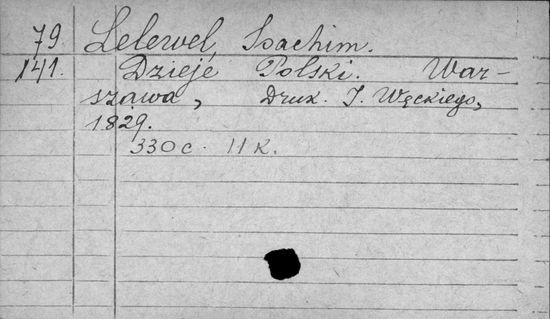 79 Lelewel, Joachim.
141. Dzieje Polski. War-
szawa, Druk. J. Węckiego,
1829.
330 c. 11 K.